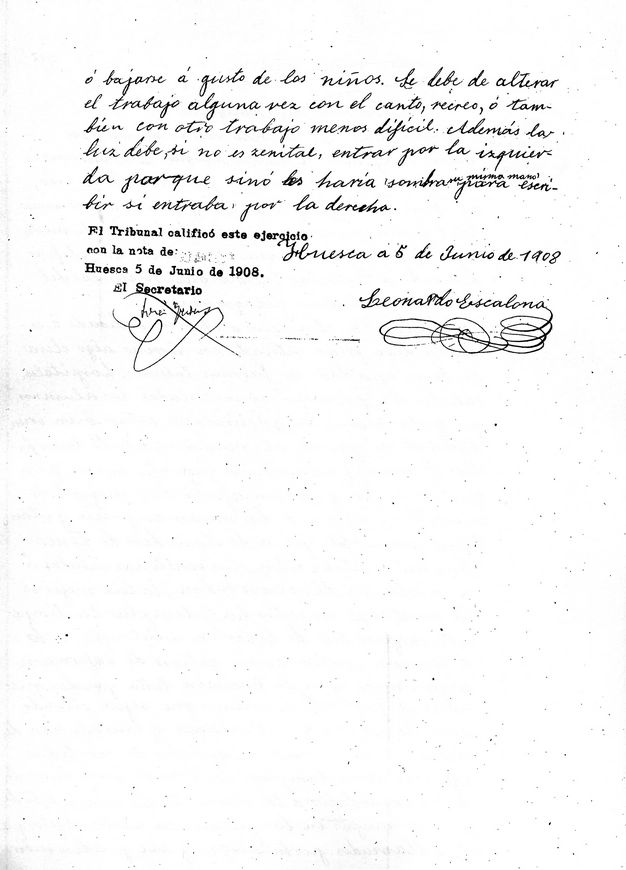 ó bajarse á gusto de los niños. Se debe de alterar
el trabajo alguna vez con el canto, recreo, ó tam-
bién con otro trabajo menos difícil. Además la
luz debe, si no es zenital, entrar por la izquier-
da porque sinó les haría sombra su misma mano para escri-
bir si entraba por la derecha.
El Tribunal calificó este ejercicio
con la nota de:
Huesca a 5 de Junio de 1908
Huesca 5 de Junio de 1908.
El Secretario
Leonardo Escalona